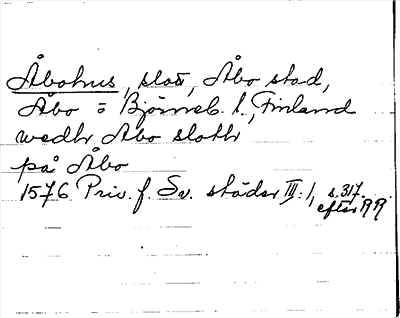 Åbohus, slott, Åbo stad,
Åbo o Björneb. l., Finland
wedh Åbo slotth
på Åbo
1576 Priv. f. Sv. städer III:1, s. 317.
efter 1919